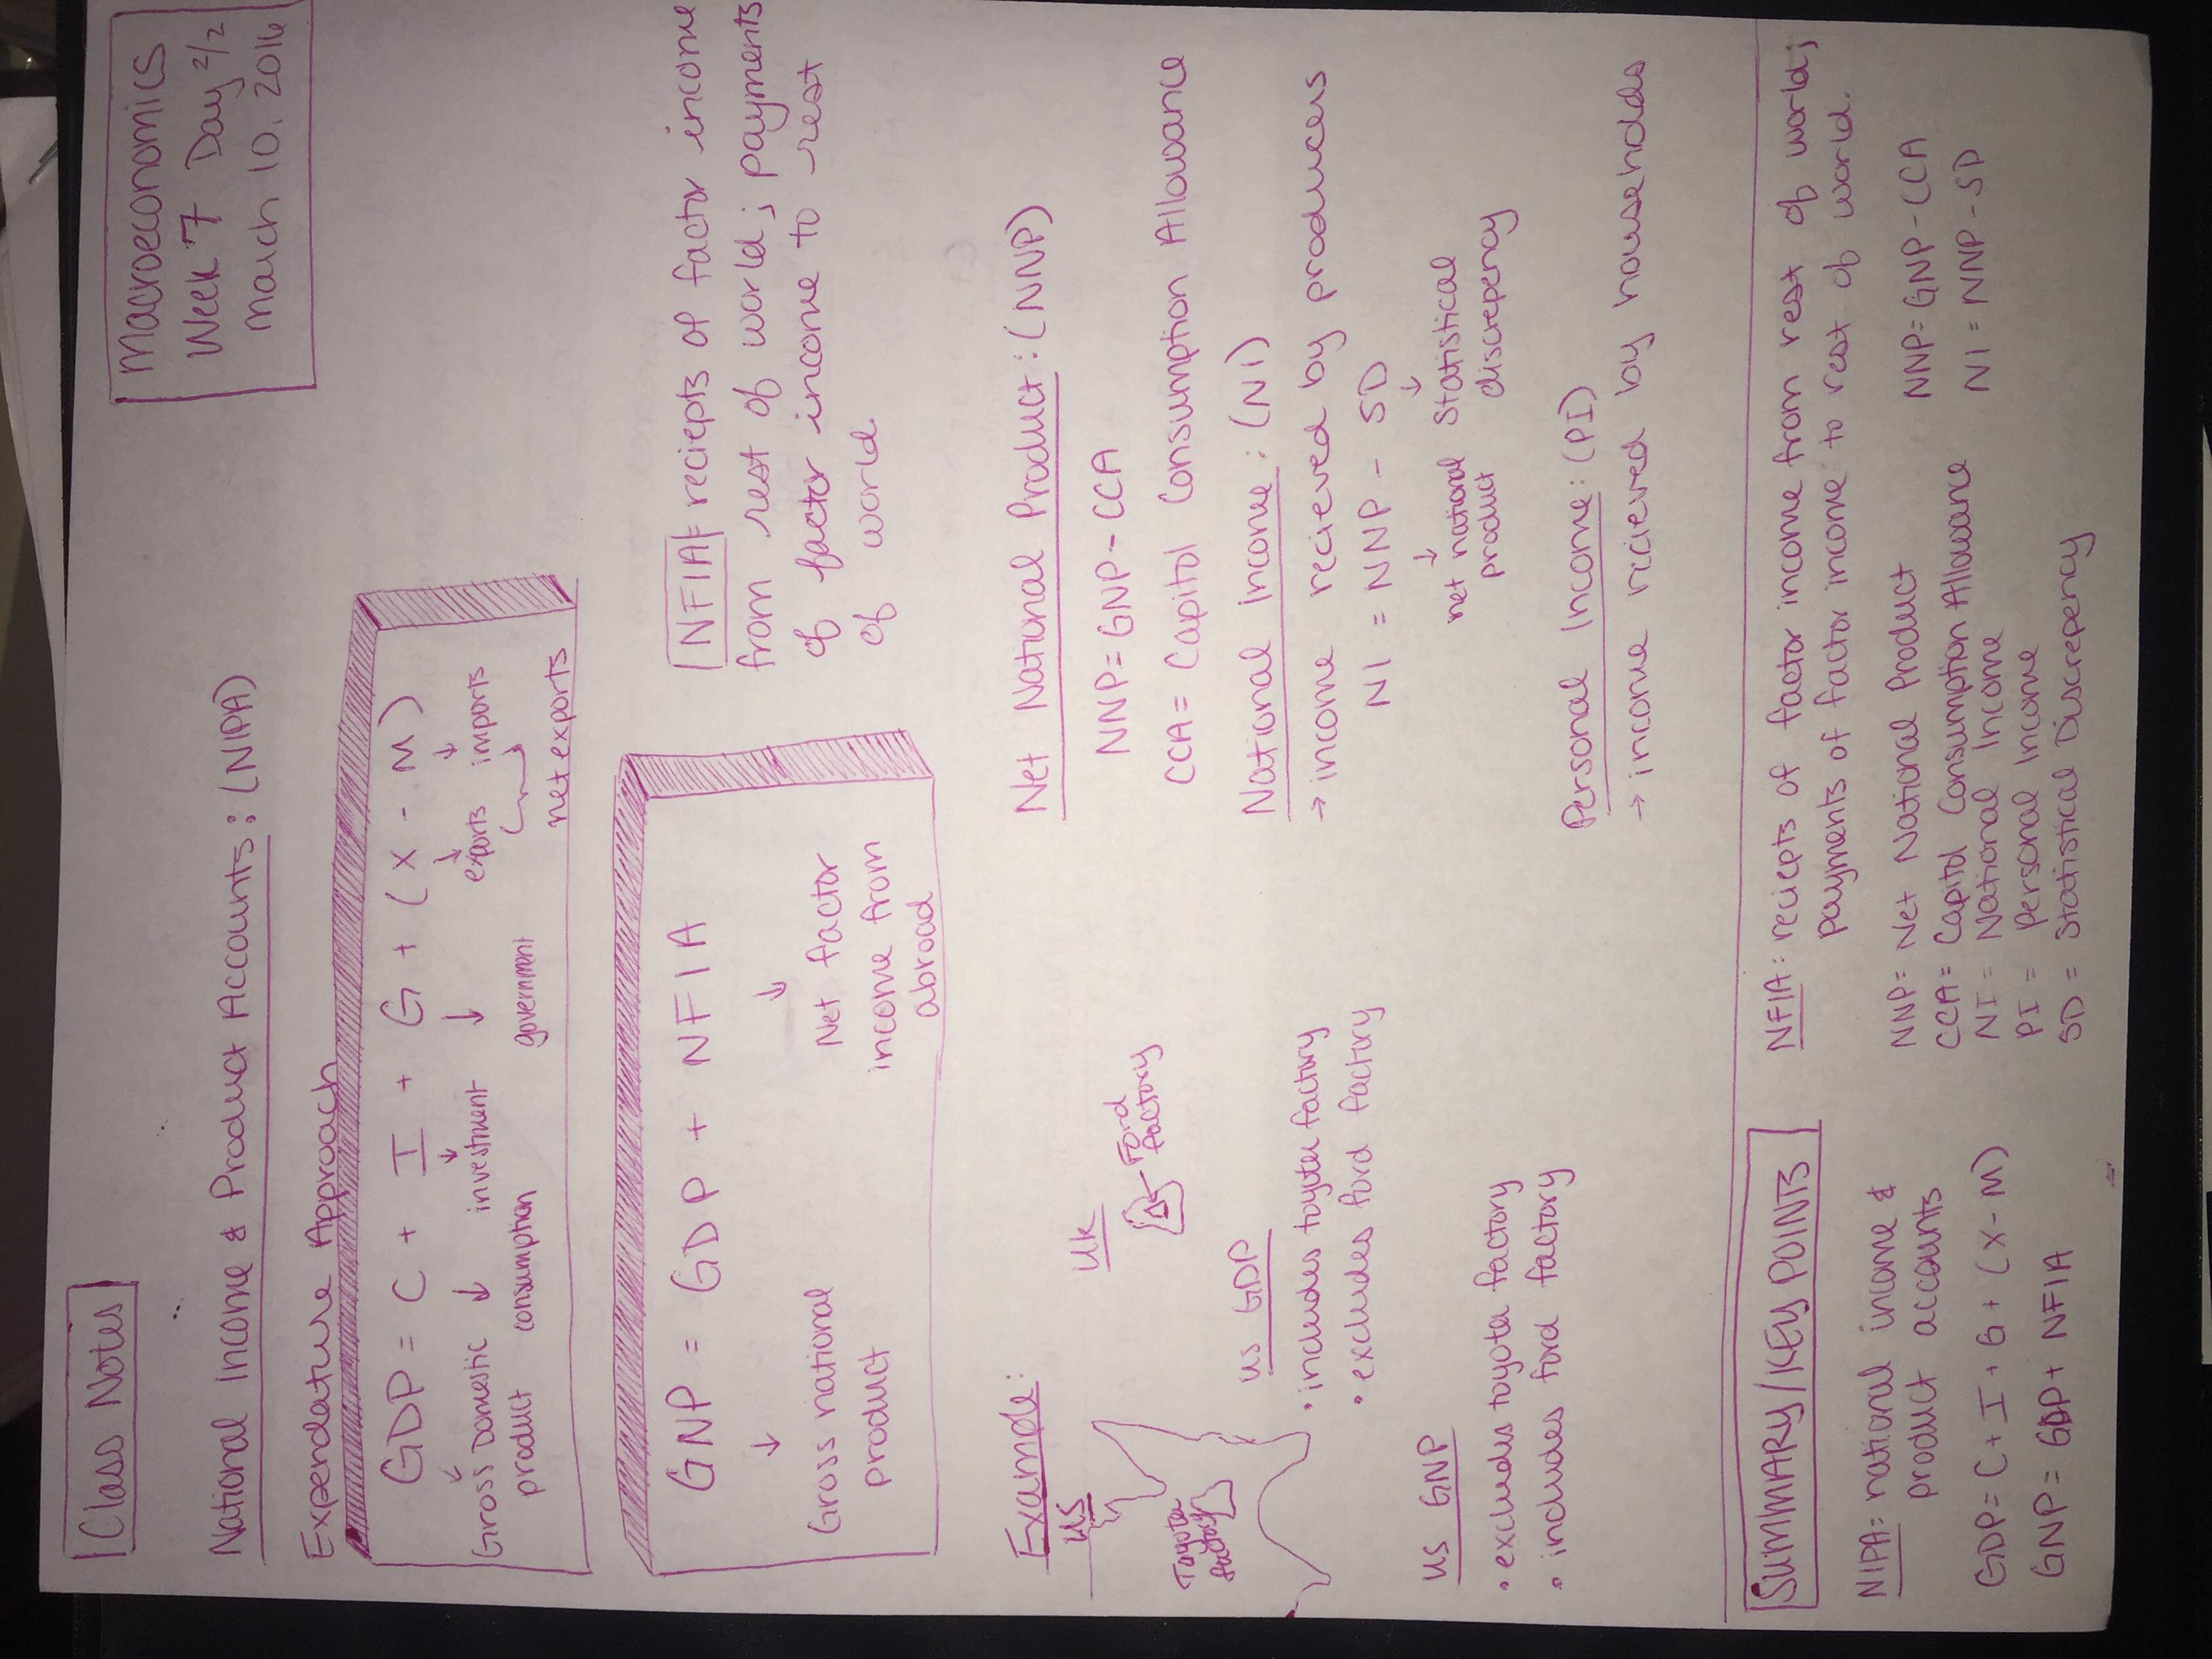 Class Notes
Macroeconomics
Week 7 Day 2/2
March 10. 2016
National Income & Product Accounts: (NIPA)
Expendature Approach
GDP = C + I + G + (X - M)
↓ ↓ ↓ ↓ ↓ ↓
Gross Domestic product
consumption
investment
government
exports imports
net exports
GNP = GDP + NFIA
↓ ↓
Gross national
product
Net factor
income from
abroad
NFIA = reciepts of factor income
from rest of world; payments
of factor income to rest
of world.
Example:
US
Toyota
factory
UK
Ford
factory
US GDP
• includes toyota factory
• excludes ford factory
US GNP
• excludes toyota factory
• includes ford factory
Net National Product: (NNP)
NNP = GNP - CCA
CCA = Capitol Consumption Allowance
National Income: (NI)
→ income recieved by producers
NI = NNP - SD
↓ ↓
net national
product
Statistical
discrepency
Personal Income: (PI)
→ income recieved by households
SUMMARY/KEY POINTS
NIPA: national income &
product accounts
GDP = C + I + G + (X - M)
GNP = GDP + NFIA
NFIA: reciepts of factor income from rest of world;
payments of factor income to rest of world.
NNP = Net National Product
CCA = Capitol Consumption Allowance
NI = National Income
PI = Personal Income
SD = Statistical Discrepency
NNP = GNP - CCA
NI = NNP - SD